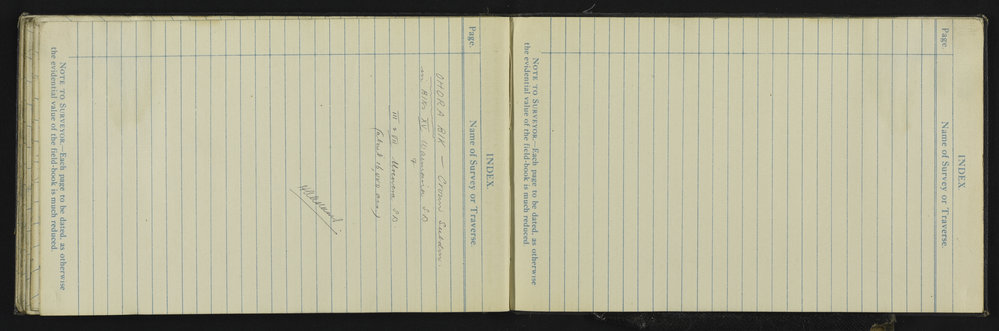 INDEX.
Page. Name of Survey or Traverse.
OHORA BLK — Crown Subdn.
in Blks XV
S.D.
&
III & VII S.D.
(about acres)
NOTE TO SURVEYOR.—Each page to be dated, as otherwise
the evidential value of the field-book is much reduced
INDEX
Page. Name of Survey or Traverse.
NOTE TO SURVEYOR.—Each page to be dated, as otherwise
the evidential value of the field-book is much reduced